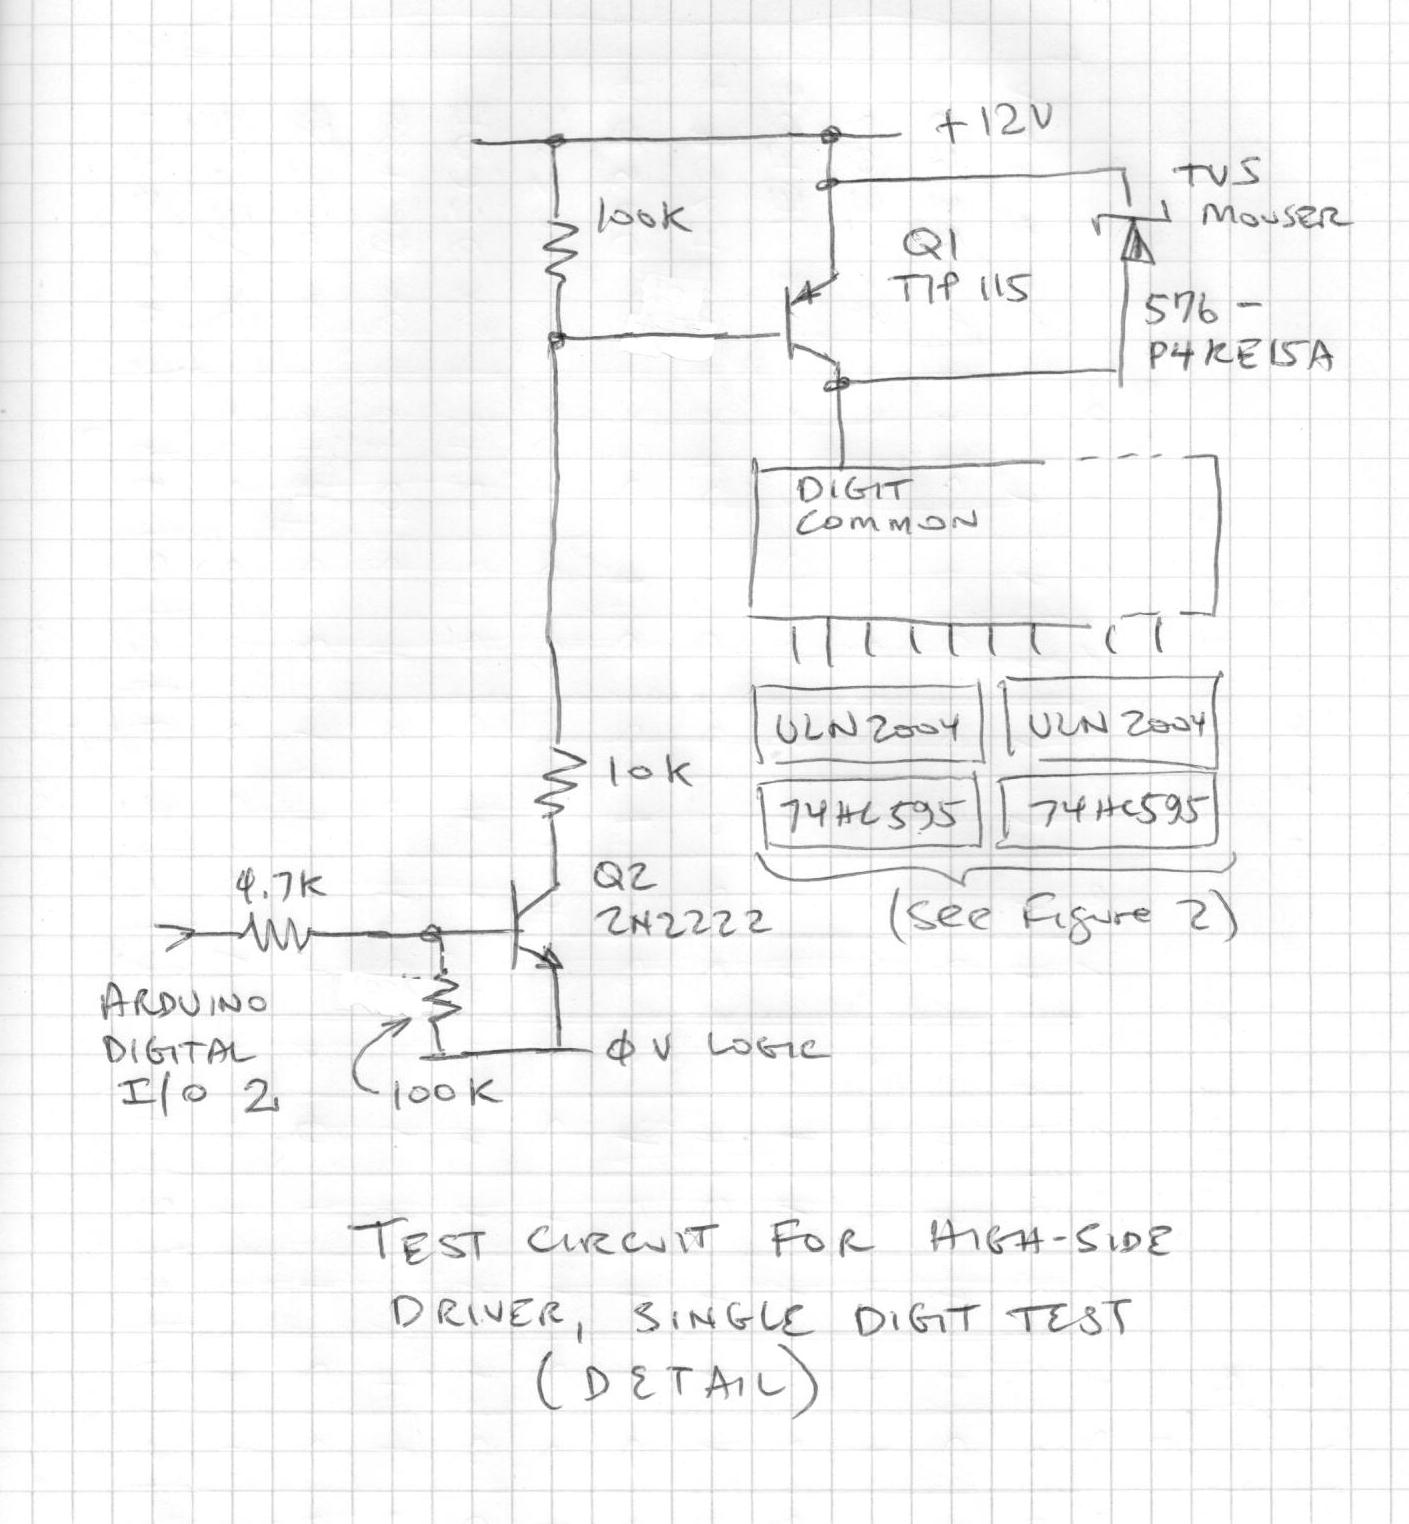 +12V
TVS
MOUSER
100K
Q1
TIP 115
576-
P4KE15A
DIGIT
COMMON
ULN2004
ULN2004
10K
74HC595
74HC595
4.7K
Q2
2N2222
(see Figure 2)
ARDUINO
DIGITAL
I/O 2
100K
φV LOGIC
TEST CIRCUIT FOR HIGH-SIDE
DRIVER, SINGLE DIGIT TEST
(DETAIL)